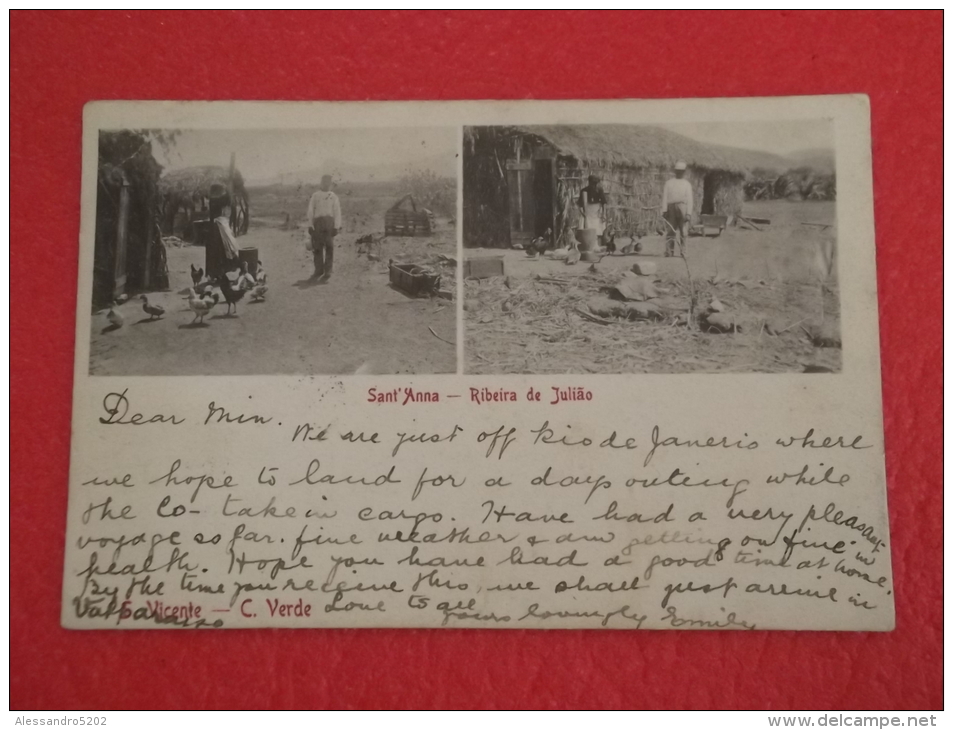 Sant'Anna — Ribeira de Julião
Dear Min.
We are just off Rio de Janerio where
we hope to land for a days outing while
the Co- take in cargo. Have had a very pleasant
voyage so far. fine weather & am getting on fine in
health. Hope you have had a good time at home.
By the time you receive this, we shall just arrive in
Valparaiso Love to all
S. Vicente — C. Verde
yours lovingly Emily
Alessandro5202
www.delcampe.net